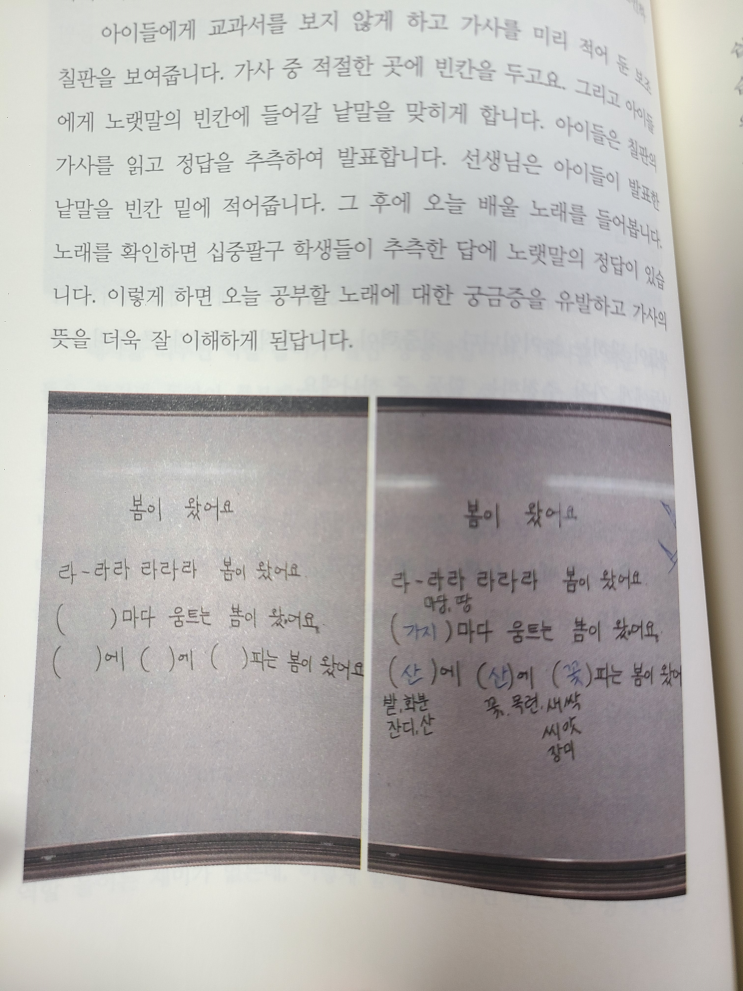 아이들에게 교과서를 보지 않게 하고 가사를 미리 적어 둔 보조
칠판을 보여줍니다. 가사 중 적절한 곳에 빈칸을 두고요. 그리고 아이들
에게 노랫말의 빈칸에 들어갈 낱말을 맞히게 합니다. 아이들은 칠판의
가사를 읽고 정답을 추측하여 발표합니다. 선생님은 아이들이 발표한
낱말을 빈칸 밑에 적어줍니다. 그 후에 오늘 배울 노래를 들어봅니다.
노래를 확인하면 십중팔구 학생들이 추측한 답에 노랫말의 정답이 있습
니다. 이렇게 하면 오늘 공부할 노래에 대한 궁금증을 유발하고 가사의
뜻을 더욱 잘 이해하게 된답니다.
봄이 왔어요
라-라라 라라라 봄이 왔어요
( )마다 움트는 봄이 왔어요
( )에 ( )에 ( )피는 봄이 왔어요
봄이 왔어요
라-라라 라라라 봄이 왔어요
마당, 땅
(가지)마다 움트는 봄이 왔어요
(산)에 (산)에 (꽃)피는 봄이 왔어
밭, 화분 꽃, 목련, 새싹
잔디, 산 씨앗
장미